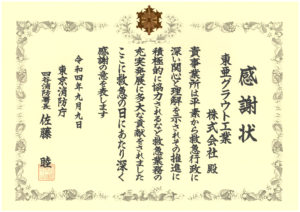 感謝状
東亜グラウト工業
株式会社 殿
貴事業所は平素から救急行政に
深い関心と理解を示されその推進に
積極的に協力されるなど救急業務の
充実発展に多大な貢献をされました
ここに救急の日にあたり深く
感謝の意を表します
令和四年九月九日
東京消防庁
四谷消防署長 佐藤 睦